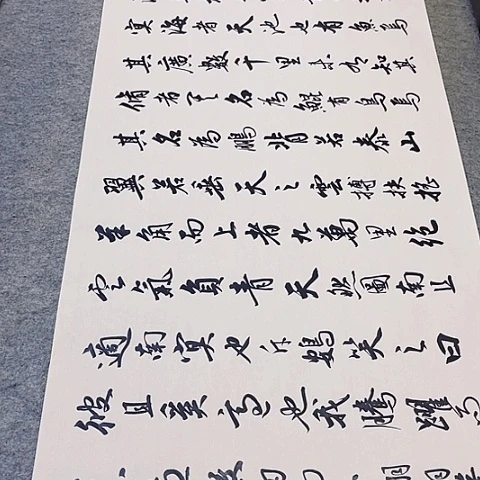 冥海者天池也有魚焉
其廣數千里未有知其
脩者其名為鯤有鳥焉
其名為鵬背若泰山
翼若垂天之雲摶扶搖
羊角而上者九萬里絕
雲氣負青天然圖南且
適南冥也斥鴳笑之曰
彼且奚適也我騰躍而